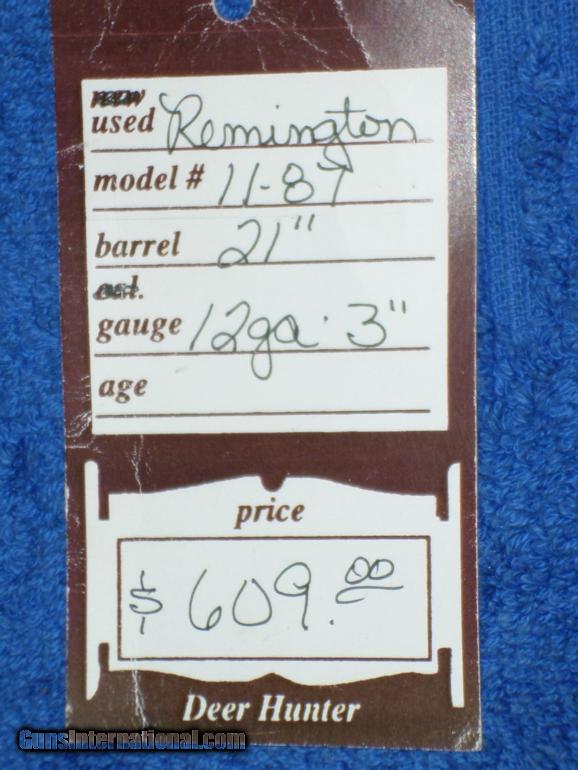 new
used Remington
model # 11-87
barrel 21"
cal.
gauge 12ga. 3"
age
price
$ 609.00
Deer Hunter
GunsInternational.com